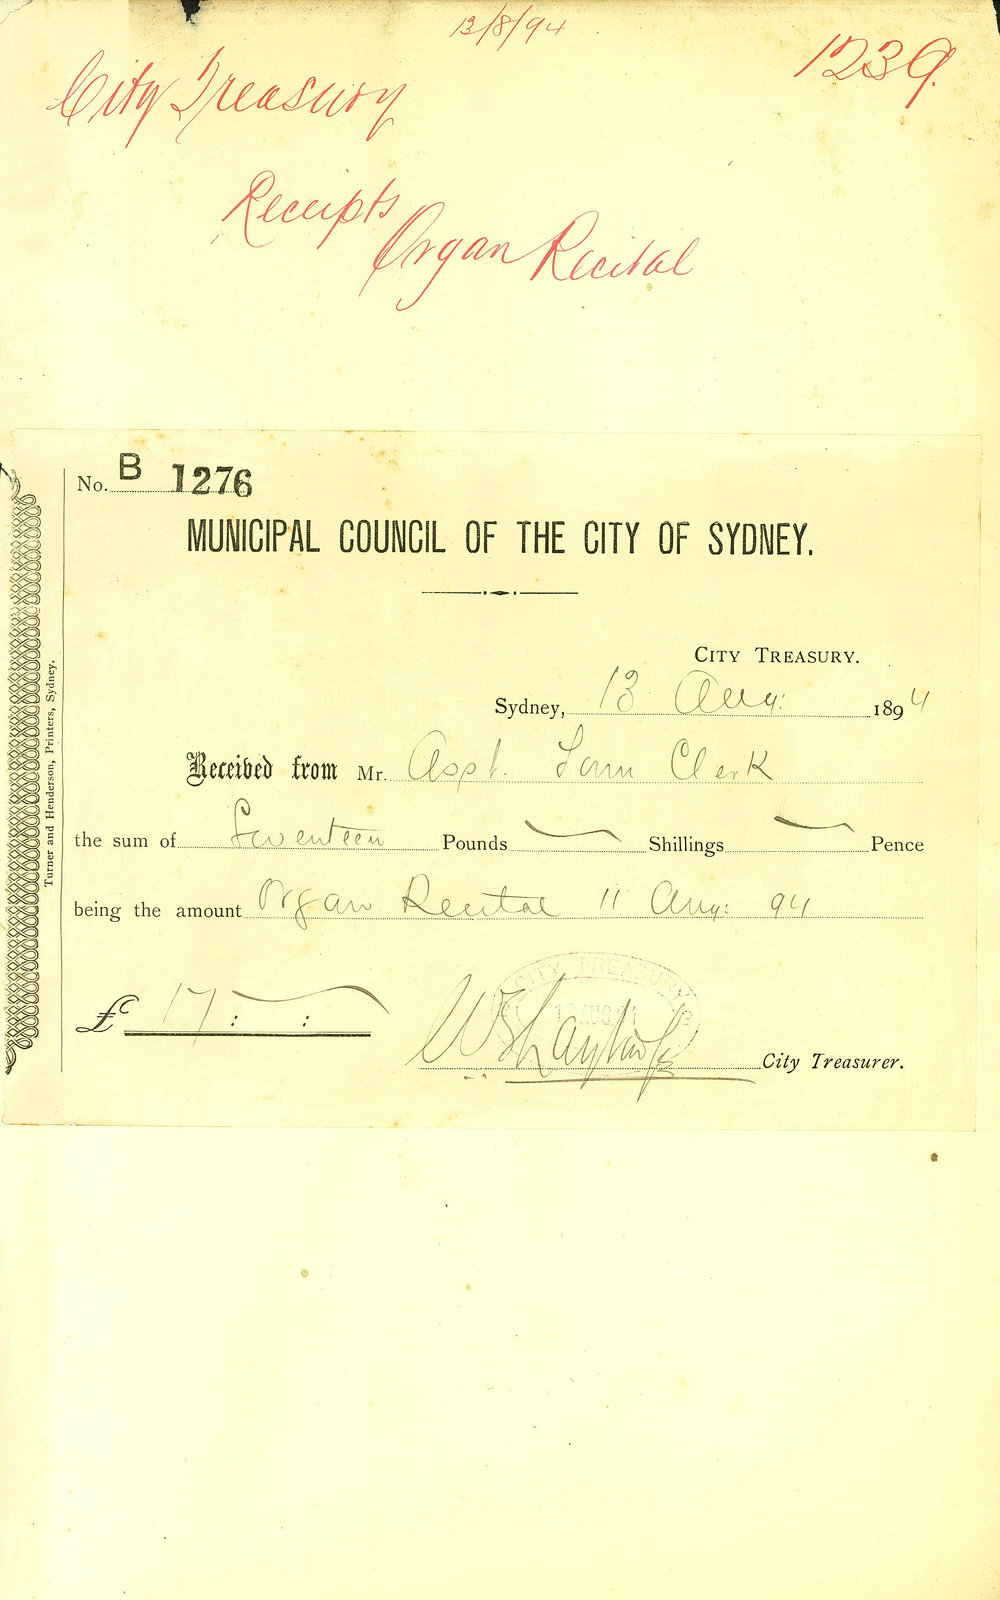 13/8/94
1239.
City Treasury
Receipts
Organ Recital
No. B 1276
MUNICIPAL COUNCIL OF THE CITY OF SYDNEY.
CITY TREASURY.
Sydney, 13 Aug: 1894
Received from Mr. Asst. Town Clerk
the sum of Seventeen Pounds Shillings Pence
being the amount Organ Recital 11 Aug: 94
£ 17 : :
CITY TREASURY
13 AUG.94
City Treasurer.
Turner and Henderson, Printers, Sydney.